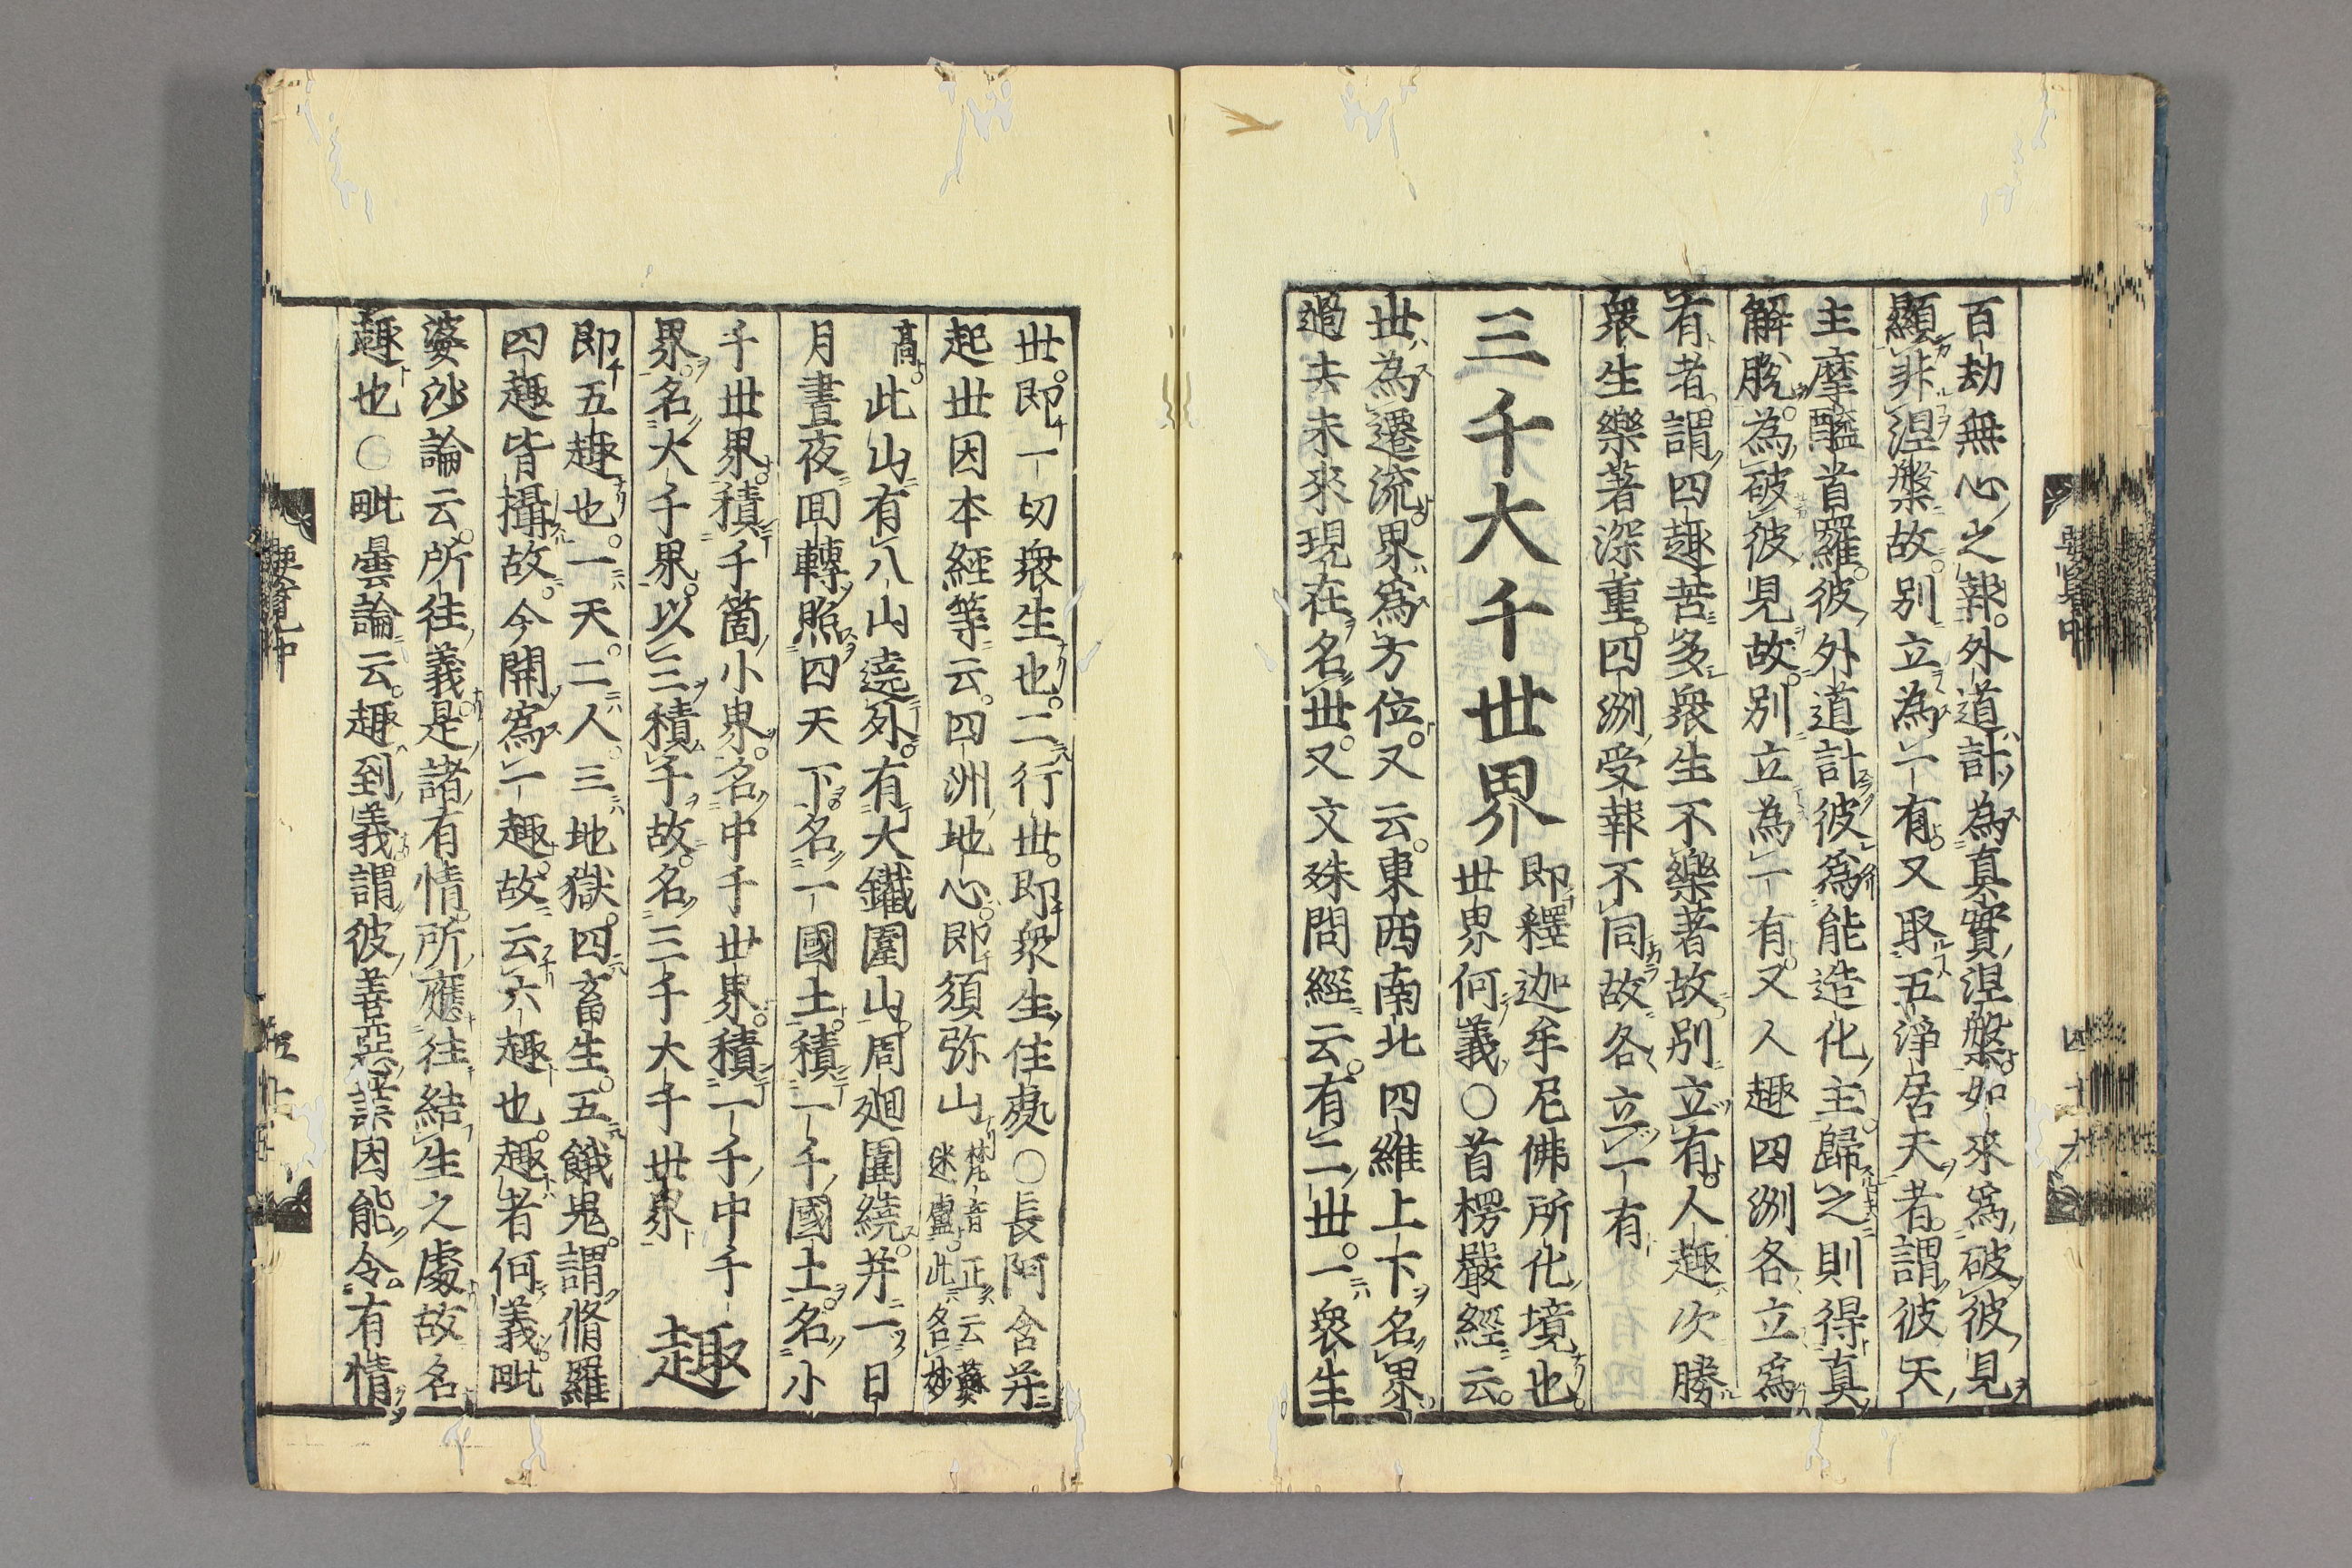 百劫無心之報外道計為真實涅槃如來為破彼見
顯非涅槃故別立為一有又取五淨居天者謂彼天
主摩醯首羅彼外道計彼為能造化主歸之則得真
解脫為破彼見故別立為一有又人趣四洲各立為
有者謂四趣苦多衆生不樂著故別立有人趣次勝
衆生樂著深重四洲受報不同故各立一有
三千大千世界
即釋迦牟尼佛所化境也
世界何義〇首楞嚴經云
世為遷流界為方位又云東西南北四維上下名界
過去未來現在名世又文殊問經云有二世一衆生
世即一切衆生也二行世即衆生住處〇長阿含并
起世因本經等云四洲地心即須弥山
梵音正云蘇
迷盧此名妙
高
此山有八山遶外有大鐵圍山周迴圍繞并一日
月晝夜囘轉照四天下名一國土積一千國土名小
千世界積千箇小界名中千世界積一千中千
界名大千界以三積千故名三千大千世界
趣
即五趣也一天二人三地獄四畜生五餓鬼謂脩羅
四趣皆攝故今開為一趣故云六趣也趣者何義毗
婆沙論云所往義是諸有情所應往結生之處故名
趣也〇毗曇論云趣到義謂彼善惡業因能令有情
要覽中
要覽中
四十六